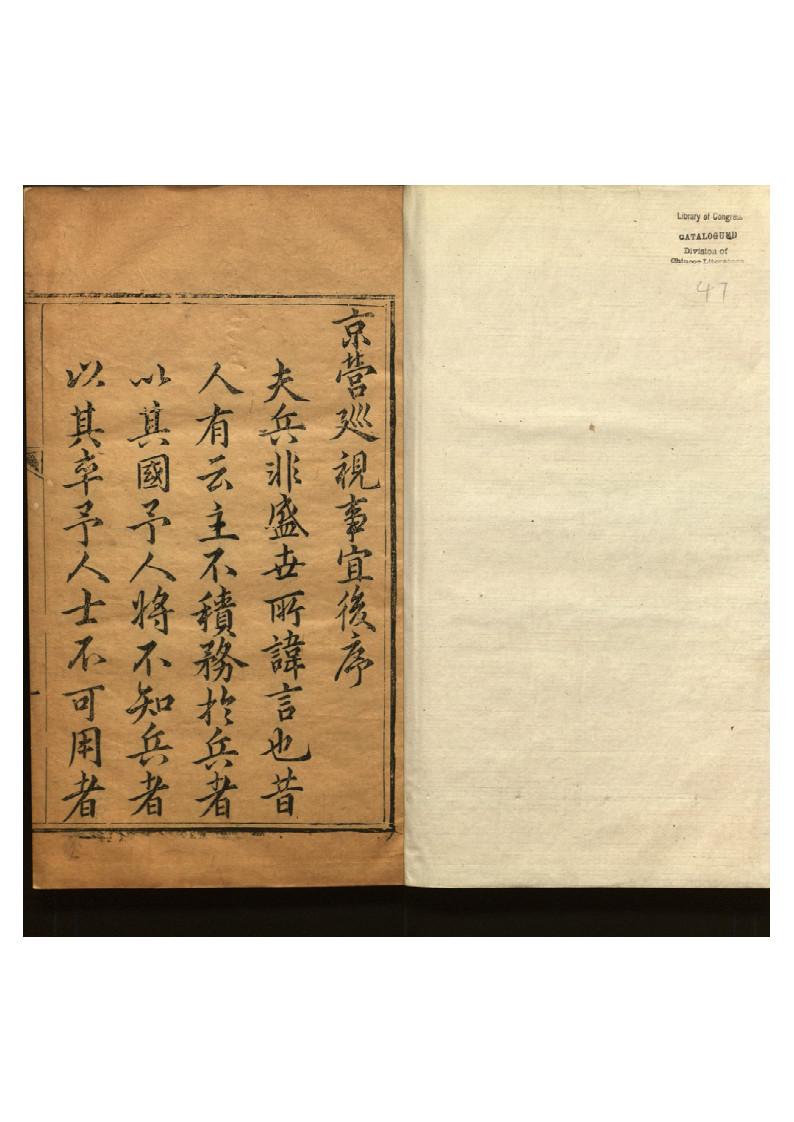 京營廵視事宜後序
夫兵非盛世所諱言也昔
人有云主不積務於兵者
以其國予人將不知兵者
以其卒予人士不可用者
Library of Congress
CATALOGUED
Division of
Chinese Literature
47